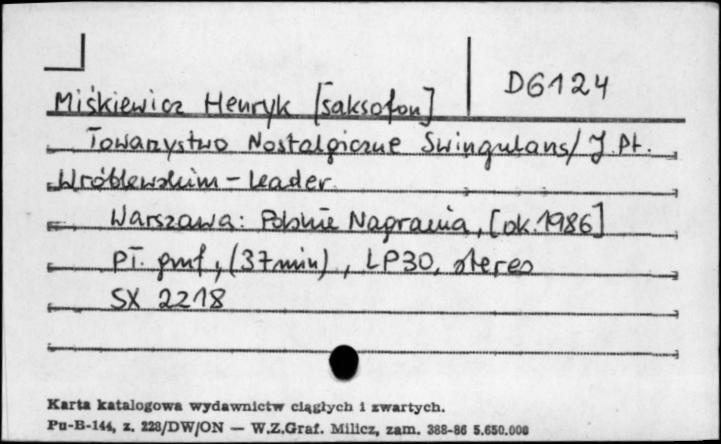 D6124
Miśkiewicz Henryk [saksofon]
Towarzystwo Nostalgiczne Swingulans / J. Pt.
Wróblewskim - leader.
Warszawa: Polskie Nagrania, [ok. 1986]
Pł. gmf, (37 min), LP30, stereo
SX 2218
Karta katalogowa wydawnictw ciągłych i zwartych.
Pu-B-144, z. 228/DW/ON — W.Z.Graf. Milicz, zam. 388-86 5.650.000